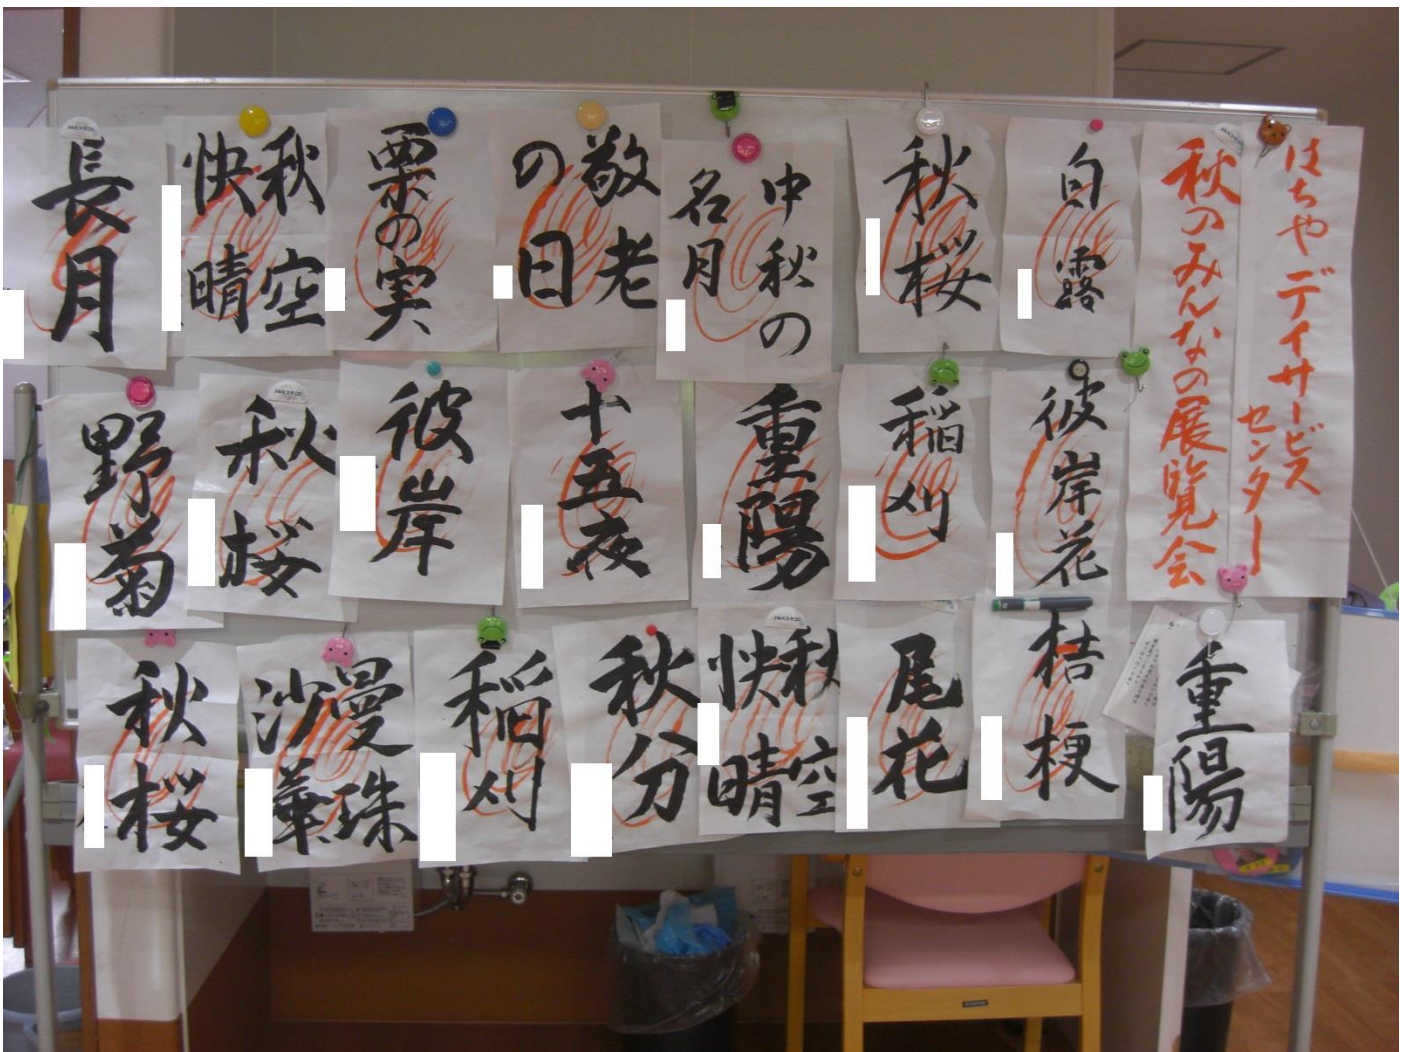 はちやデイサービス
センター
秋のみんなの展覧会
白露
秋桜
中秋の
名月
敬老
の日
栗の実
秋空
快晴
長月
彼岸花
稲刈
重陽
十五夜
彼岸
秋桜
野菊
重陽
桔梗
尾花
秋空
快晴
秋分
稲刈
曼珠
沙華
秋桜